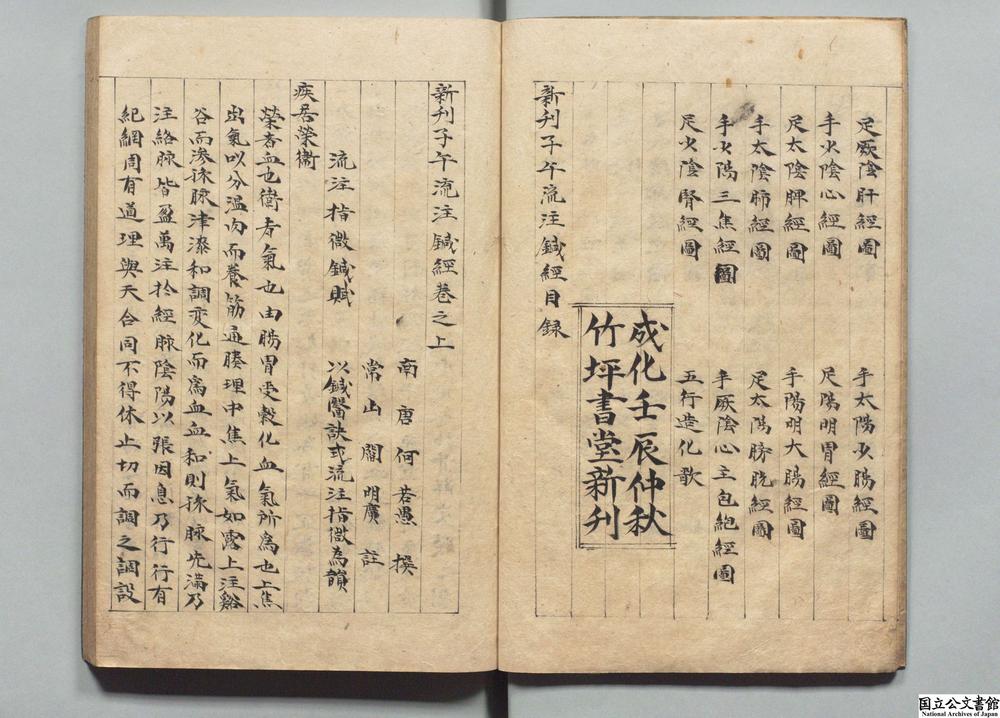 足厥陰肝經圖　手太陽少腸經圖
手火陰心經圖　足陽明胃經圖
足太陰脾經圖　手陽明大腸經圖
手太陰肺經圖　足太陽膀胱經圖
手火陽三焦經圖　手厥陰心主包絡經圖
足火陰腎經圖　五行造化歌
成化壬辰仲秋
竹坪書堂新刊
新刊子午流注鍼經目録
新刊子午流注鍼經卷之上
南唐何若愚撰
常山閻明廣註
流注指微鍼賦　以鍼醫訣式流注指微為韻
疾居榮衞
榮者血也衛者氣也由腸胃受穀化血氣所為也上焦
出氣以分温肉而養筋通腠理中焦上氣如露上注谿
谷而滲孫脉津液和調変化而為血血和則孫脉先滿乃
注絡脉皆盈萬注扵經脉陰陽以張因息乃行行有
紀綱周有道理與天合同不得休止切而調之調設
国立公文書館
National Archives of Japan